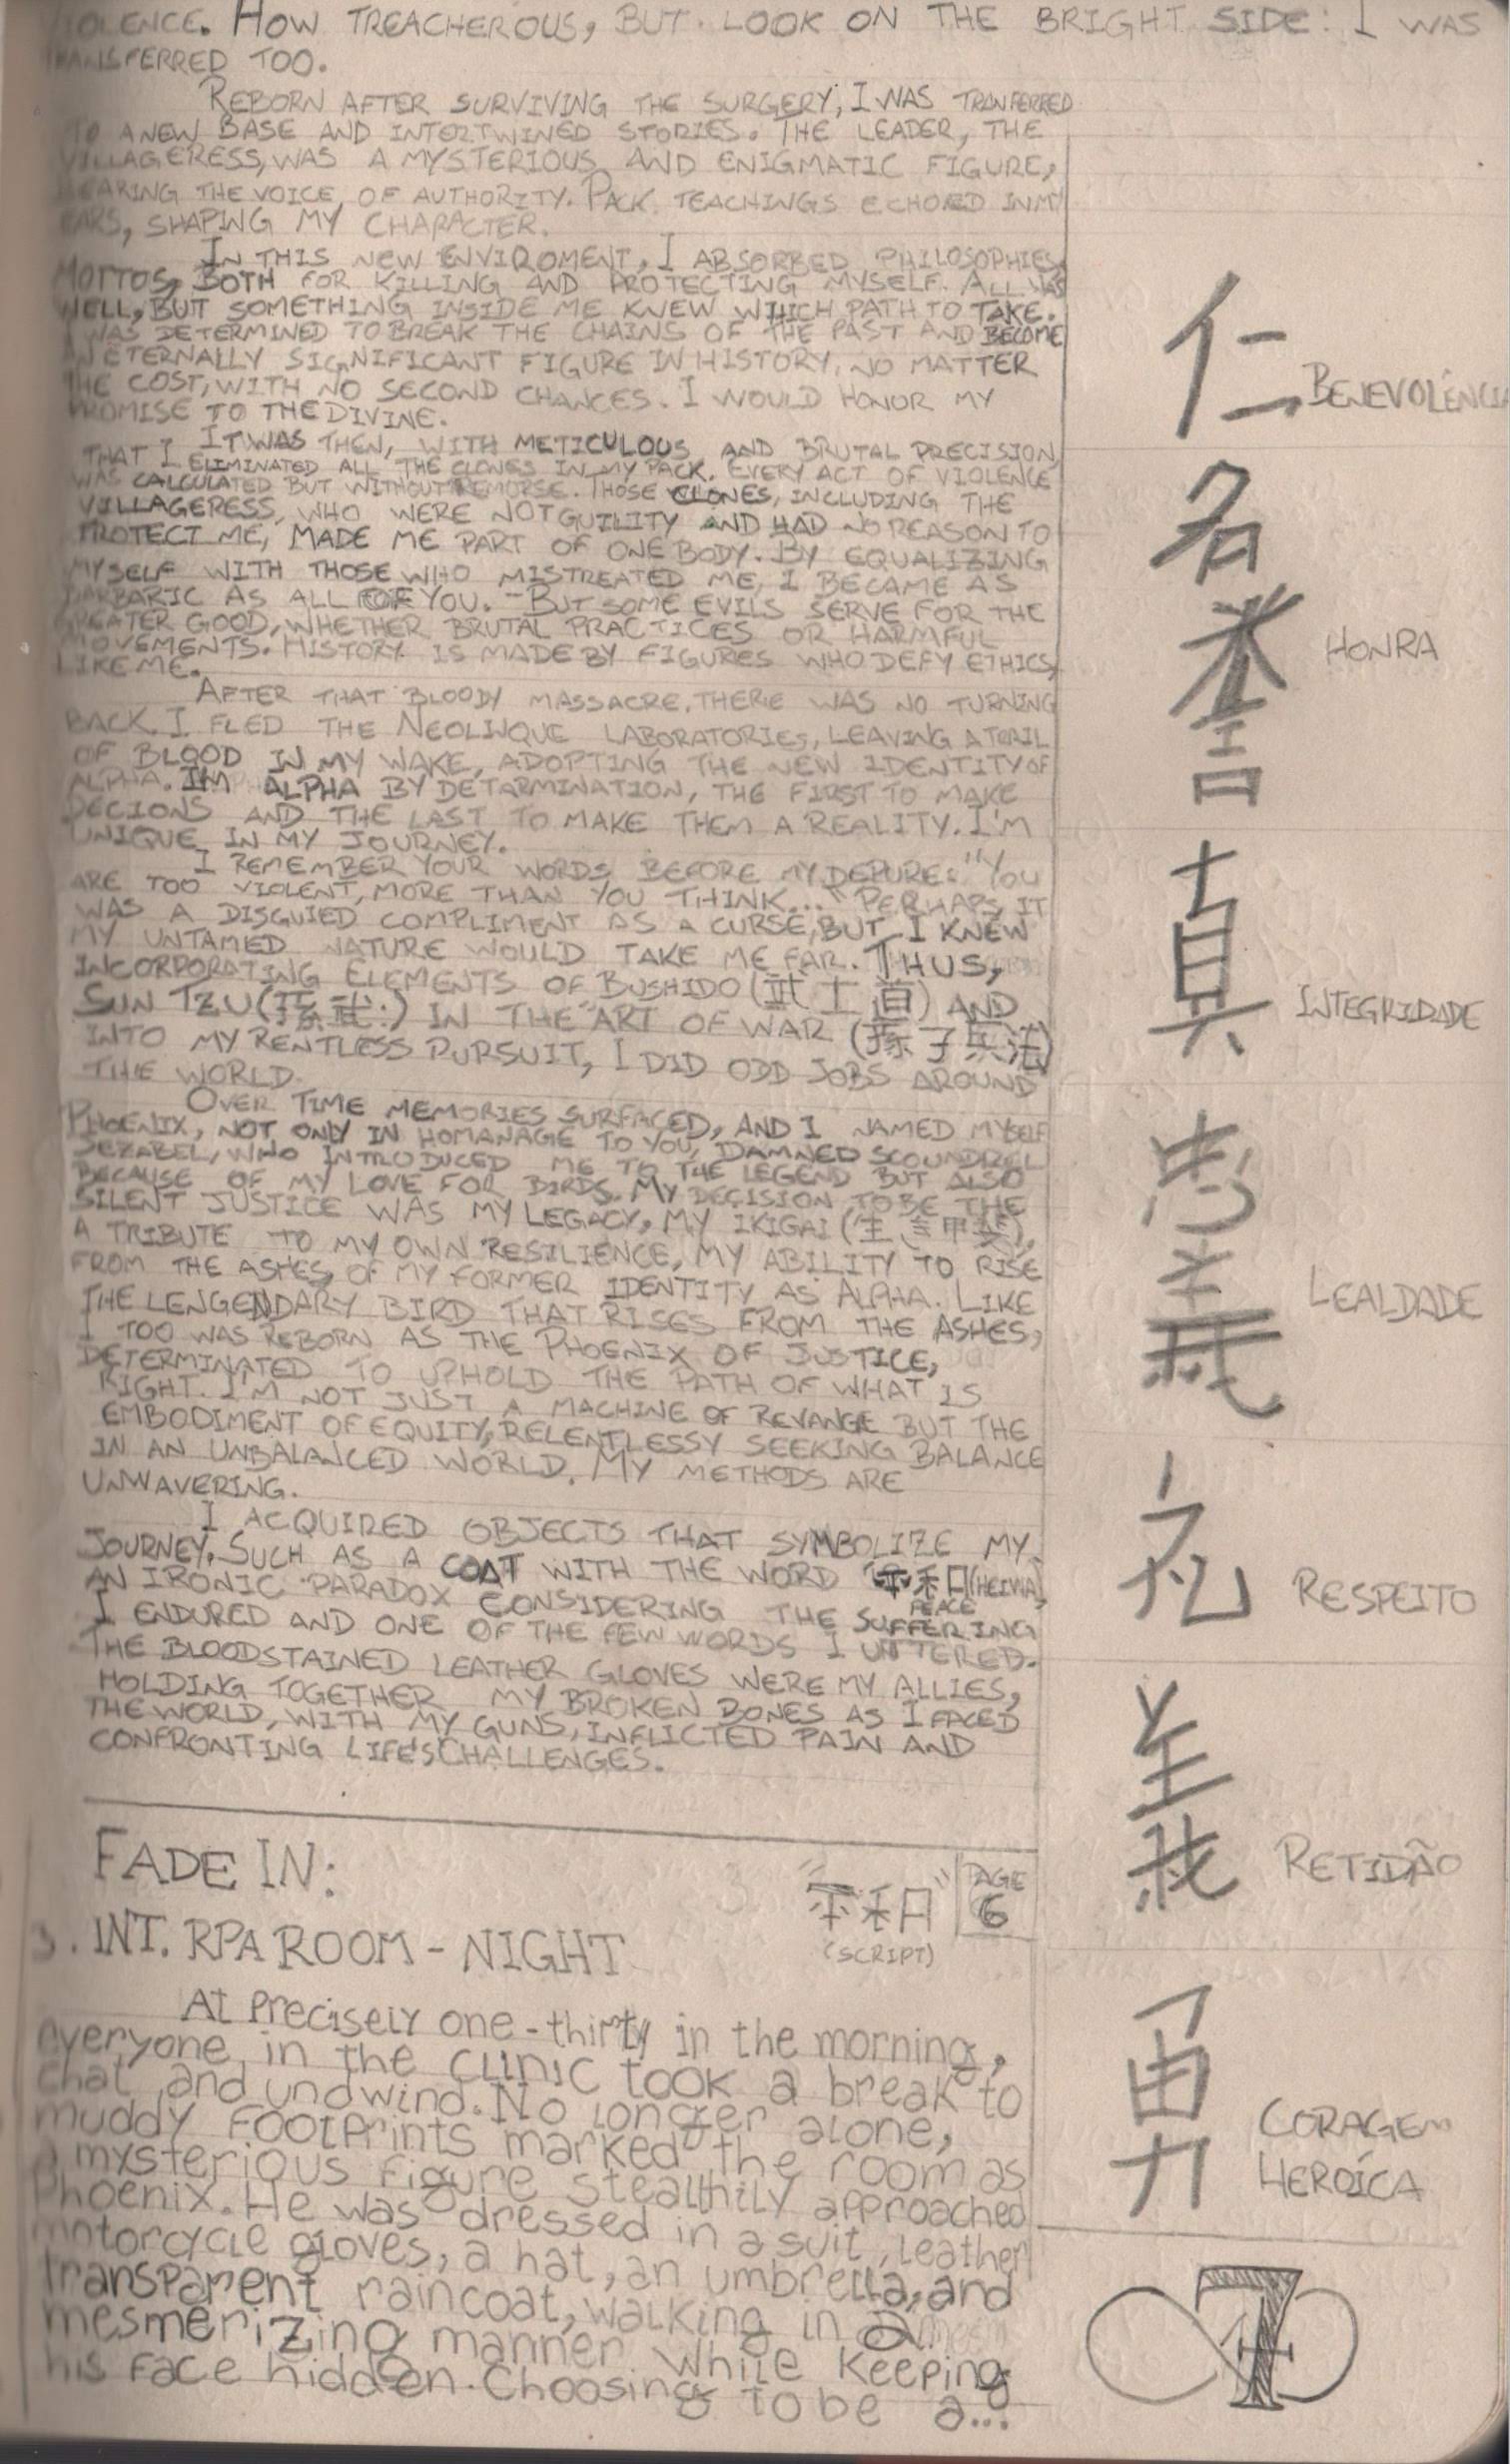 VIOLENCE. HOW TREACHEROUS, BUT LOOK ON THE BRIGHT SIDE: I WAS
TRANSFERRED TOO.
REBORN AFTER SURVIVING THE SURGERY, I WAS TRANFERRED
TO A NEW BASE AND INTERTWINED STORIES. THE LEADER, THE
VILLAGERESS, WAS A MYSTERIOUS AND ENIGMATIC FIGURE,
BEARING THE VOICE OF AUTHORITY. PACK TEACHINGS ECHORED IN MY
EARS, SHAPING MY CHARACTER.
IN THIS NEW ENVIROMENT, I ABSORBED PHILOSOPHIES,
MOTTOS, BOTH FOR KILLING AND PROTECTING MYSELF. ALL WAS
WELL, BUT SOMETHING INSIDE ME KNEW WHICH PATH TO TAKE.
I WAS DETERMINED TO BREAK THE CHAINS OF THE PAST AND BECOME
AN ETERNALLY SIGNIFICANT FIGURE IN HISTORY, NO MATTER
THE COST, WITH NO SECOND CHANCES. I WOULD HONOR MY
PROMISE TO THE DIVINE.
IT WAS THEN, WITH METICULOUS AND BRUTAL PRECISION,
THAT I ELIMINATED ALL THE CLONES IN MY PACK. EVERY ACT OF VIOLENCE
WAS CALCULATED BUT WITHOUT REMORSE. THOSE CLONES, INCLUDING THE
VILLAGERESS, WHO WERE NOT GUILITY AND HAD NO REASON TO
PROTECT ME, MADE ME PART OF ONE BODY. BY EQUALIZING
MYSELF WITH THOSE WHO MISTREATED ME, I BECAME AS
BARBARIC AS ALL OF YOU. - BUT SOME EVILS SERVE FOR THE
GREATER GOOD, WHETHER BRUTAL PRACTICES OR HARMFUL
MOVEMENTS. HISTORY IS MADE BY FIGURES WHO DEFY ETHICS,
LIKE ME.
AFTER THAT BLOODY MASSACRE, THERE WAS NO TURNING
BACK. I FLED THE NEOLINQUE LABORATORIES, LEAVING A TRAIL
OF BLOOD IN MY WAKE, ADOPTING THE NEW IDENTITY OF
ALPHA. I'M ALPHA BY DETARMINATION, THE FIRST TO MAKE
DECIONS AND THE LAST TO MAKE THEM A REALITY. I'M
UNIQUE IN MY JOURNEY.
I REMEMBER YOUR WORDS BEFORE MY DEPURE: "YOU
ARE TOO VIOLENT, MORE THAN YOU THINK..." PERHAPS IT
WAS A DISGUIED COMPLIMENT AS A CURSE, BUT I KNEW
MY UNTAMED NATURE WOULD TAKE ME FAR. THUS,
INCORPORATING ELEMENTS OF BUSHIDO (武士道) AND
SUN TZU IN THE "ART OF WAR (孫子兵法)
INTO MY RENTLESS PURSUIT, I DID ODD JOBS AROUND
THE WORLD.
OVER TIME MEMORIES SURFACED, AND I NAMED MYSELF
PHOENIX, NOT ONLY IN HOMANAGE TO YOU, DAMNED SCOUNDREL
JEZABEL, WHO INTRODUCED ME TO THE LEGEND BUT ALSO
BECAUSE OF MY LOVE FOR BIRDS. MY DECISION TO BE THE
SILENT JUSTICE WAS MY LEGACY, MY IKIGAI
A TRIBUTE TO MY OWN RESILIENCE, MY ABILITY TO RISE
FROM THE ASHES OF MY FORMER IDENTITY AS ALPHA. LIKE
THE LENGENDARY BIRD THAT RISES FROM THE ASHES,
I TOO WAS REBORN AS THE PHOENIX OF JUSTICE,
DETERMINATED TO UPHOLD THE PATH OF WHAT IS
RIGHT. I'M NOT JUST A MACHINE OF REVANGE BUT THE
EMBODIMENT OF EQUITY, RELENTLESSY SEEKING BALANCE
IN AN UNBALANCED WORLD. MY METHODS ARE
UNWAVERING.
I ACQUIRED OBJECTS THAT SYMBOLIZE MY
JOURNEY, SUCH AS A COAT WITH THE WORD 平和 (HEIWA),
PEACE
AN IRONIC PARADOX CONSIDERING THE SUFFERING
I ENDURED AND ONE OF THE FEW WORDS I UTTERED.
THE BLOODSTAINED LEATHER GLOVES WERE MY ALLIES,
HOLDING TOGETHER MY BROKEN BONES AS I FACED
THE WORLD, WITH MY GUNS, INFLICTED PAIN AND
CONFRONTING LIFE'S CHALLENGES.
FADE IN:
"平和"
(SCRIPT)
PAGE
6
3. INT. RPA ROOM - NIGHT
At Precisely one-thirty in the morning,
everyone in the CLINIC took a break to
chat and undwind. No longer alone,
muddy FOOTPrints marked the room as
a mysterious figure stealthily approached
Phoenix. He was dressed in a suit, leather
motorcycle gloves, a hat, an umbrella, and
transparent raincoat, walking in a
mesmerizing manner while keeping
his face hidden. Choosing to be a...
仁 BENEVOLÊNCIA
名誉 HONRA
真 INTEGRIDADE
忠義 LEALDADE
礼 RESPEITO
義 RETIDÃO
勇 CORAGEM
HERÓICA
7